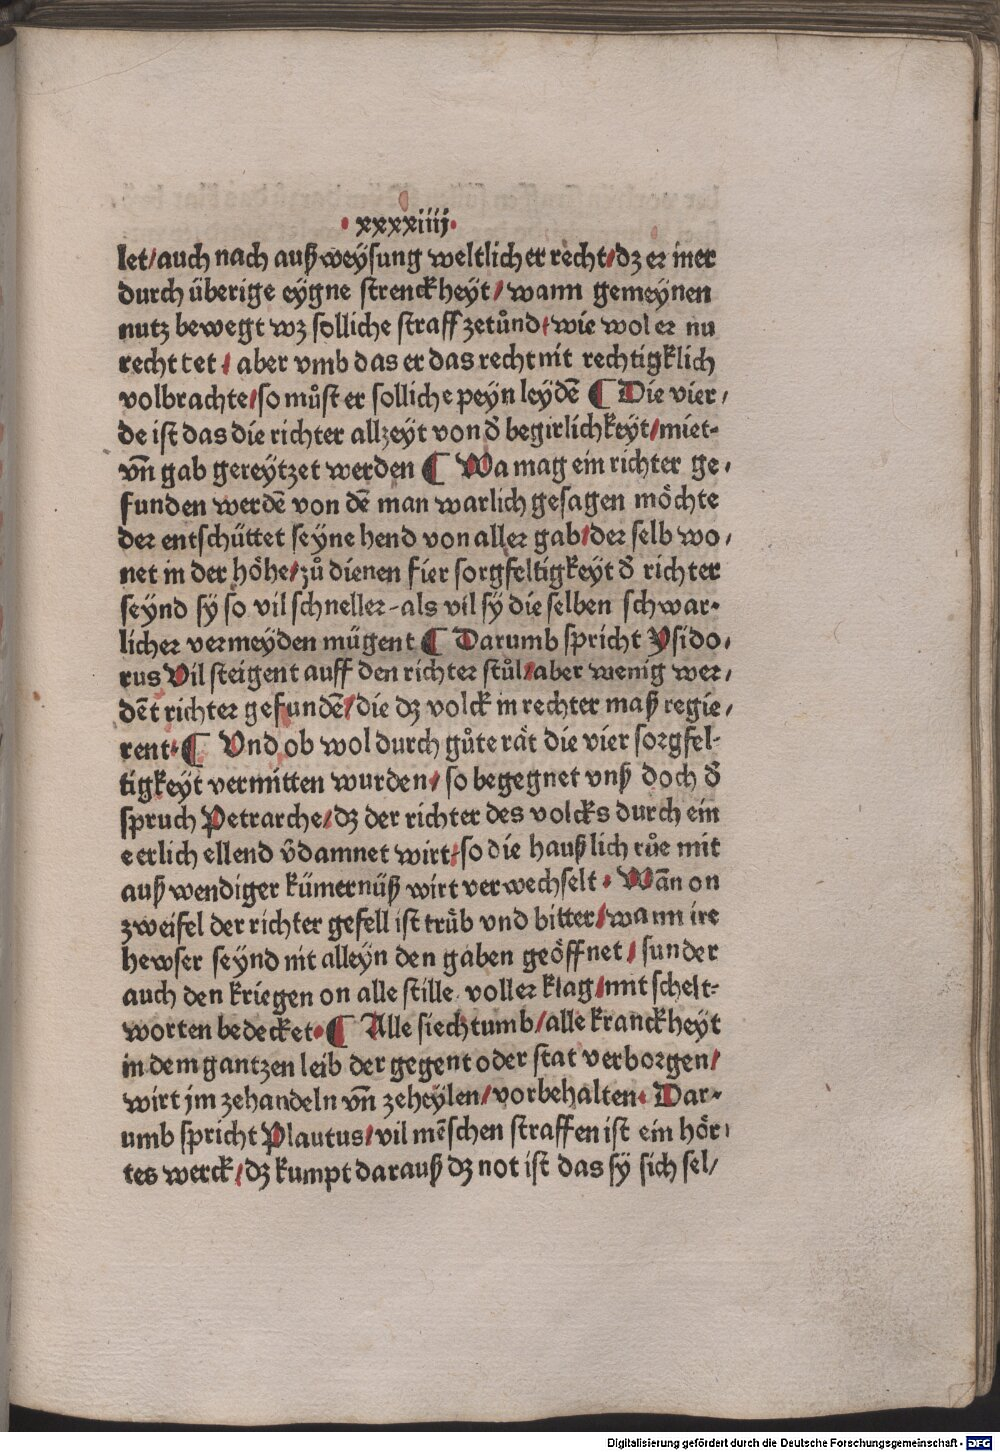 ·xxxxiiij·
let/auch nach außweysung weltlicher recht/dz er mer
durch überige eygne strenckheyt/wann gemeynen
nutz bewegt wz solliche straff zetůnd/wie wol er nu
recht tet/aber vmb das er das recht nit rechtigklich
volbrachte/so můst er solliche peyn leydē ¶ Die vier/
de ist das die richter allzeyt von d̄ begirlichkeyt/miet-
vn̄ gab gereytzet werden ¶ Wa mag ein richter ge/
funden werdē von dē man warlich gesagen möchte
der entschüttet seyne hend von aller gab/der selb wo/
net in der höhe/zů dienen fier sorgfeltigkeyt d̄ richter
seynd sy so vil schneller-als vil sy die selben schwar-
licher vermeyden mügent ¶ Darumb spricht Ysido/
rus Vil steigent auff den richter stůl/aber wenig wer/
dēt richter gefundē/die dz volck in rechter maß regie/
rent·¶ Vnd ob wol durch gůte rät die vier sorgfel-
tigkeyt vermitten wurden/so begegnet vnß doch d̄
spruch Petrarche/dz der richter des volcks durch ein
eerlich ellend v̄damnet wirt/so die haußlich růe mit
außwendiger kümernüß wirt verwechselt·Wān on
zweifel der richter gefell ist trůb vnd bitter/wann ire
hewser seynd nit alleyn den gaben geöffnet/sunder
auch den kriegen on alle stille.voller klag/mit schelt-
worten bedecket·¶ Alle siechtumb/alle kranckheyt
in dem gantzen leib der gegent oder stat verborgen/
wirt jm zehandeln vn̄ zeheylen/vorbehalten·Dar-
umb spricht Plautus/vil mēschen straffen ist ein hör/
tes werck/dz kumpt darauß dz not ist das sy sich sel/
Digitalisierung gefördert durch die Deutsche Forschungsgemeinschaft - DFG